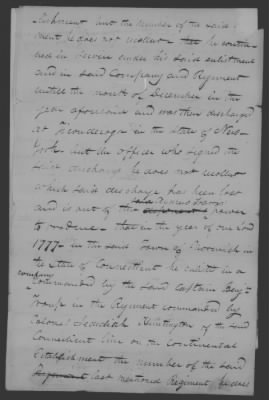 Regiment but the number of the said
ment he does not recollect he contin-
ued in service under his said enlistment
and in said Company and Regiment
untill the month of December in the
year aforesaid and was then discharged
at Ticonderoga in the state of New
York but the officer who signed the
said discharge he does not recollect
which said discharge has been lost
and is out of the power
to produce that in the year of our Lord
1777 in the said Town of Norwich in
the State of Connecticut he enlisted in a
company
Commanded by the said Captain Benj
Troup in the Regiment commanded by
Colonel Jedediah Huntington of the said
Connecticut line on the Continental
Establishment the number of the said
Regiment last mentioned Regiment he does